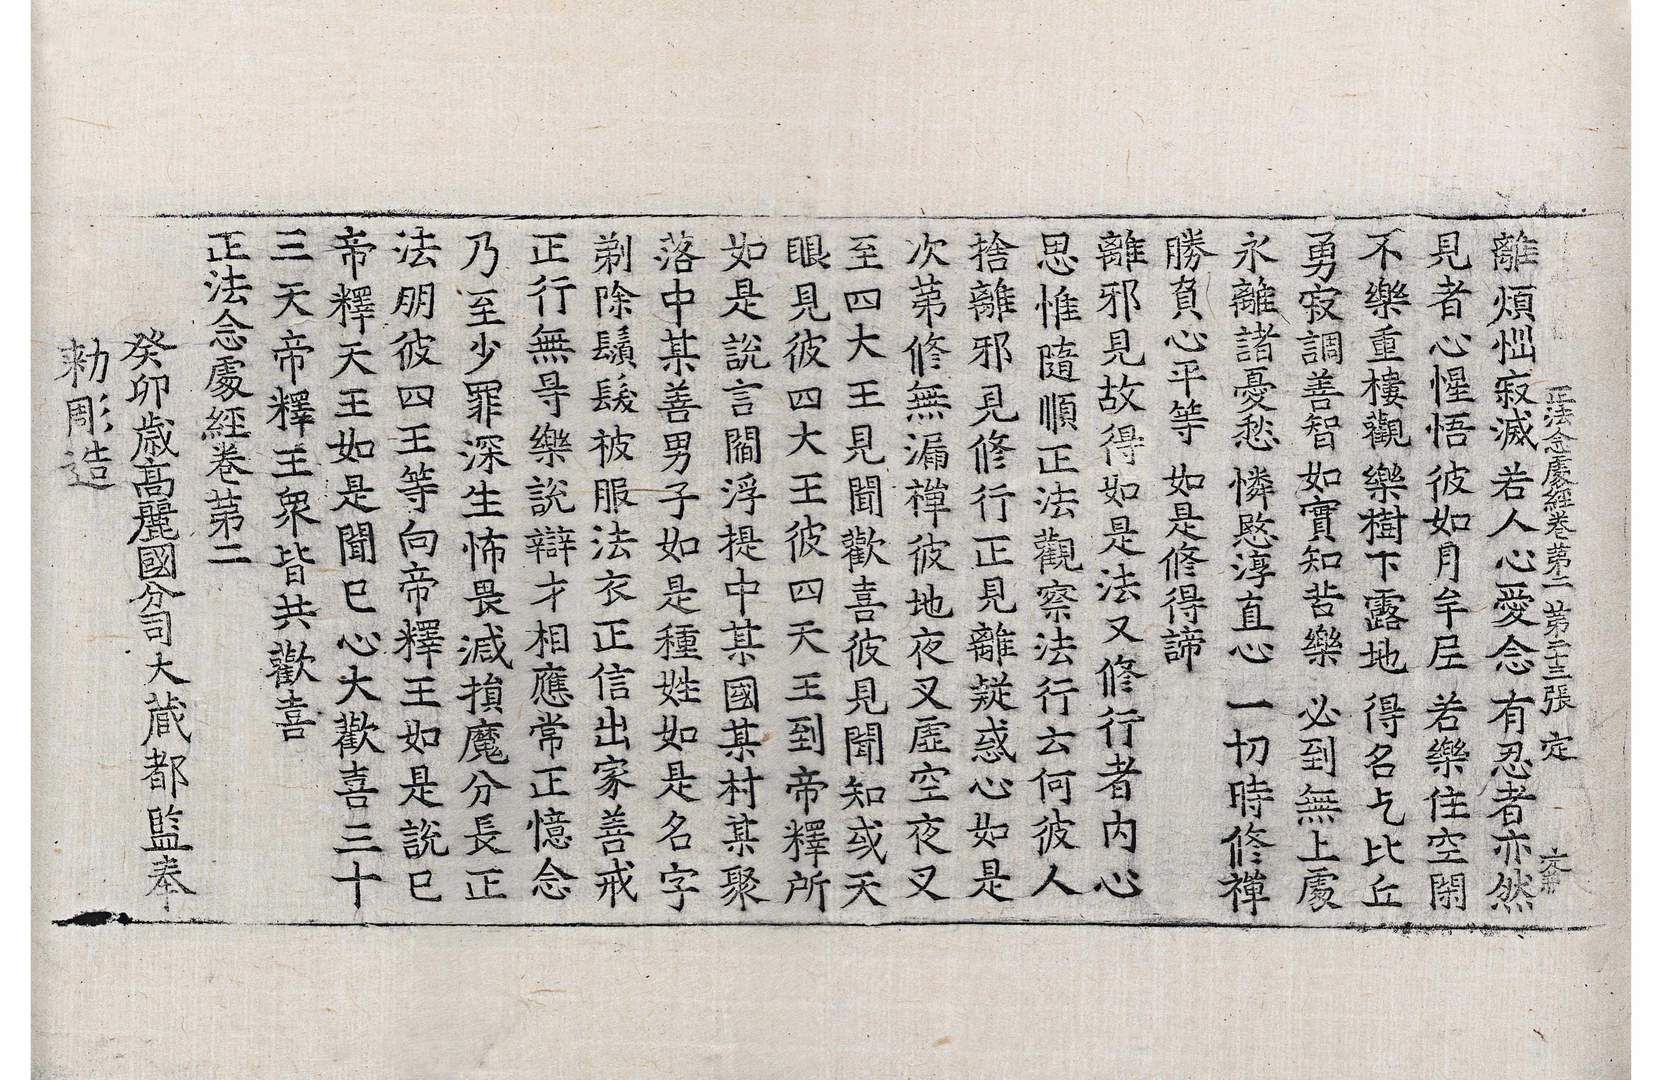 正法念處經卷第二 第二十三張 定
離煩惱寂滅 若人心愛念 有忍者亦然
見者心惺悟 彼如月牟尼 若樂住空閑
不樂重樓觀 樂樹下露地 得名乞比丘
勇寂調善智 如實知苦樂 必到無上處
永離諸憂愁 憐愍淳直心 一切時修禪
勝負心平等 如是修得諦
離邪見故得如是法又修行者内心
思惟隨順正法觀察法行云何彼人
捨離邪見修行正見離疑惑心如是
次第修無漏禪彼地夜叉虛空夜叉
至四大王見聞歡喜彼見聞知或天
眼見彼四大王彼四天王到帝釋所
如是說言閻浮提中某國某村某聚
落中某善男子如是種姓如是名字
剃除鬚髮被服法衣正信出家善戒
正行無㝵樂說辯才相應常正憶念
乃至少罪深生怖畏減損魔分長正
法朋彼四王等向帝釋王如是說已
帝釋天王如是聞已心大歡喜三十
三天帝釋王衆皆共歡喜
正法念處經卷第二
癸卯歲高麗國分司大藏都監奉
勑彫造